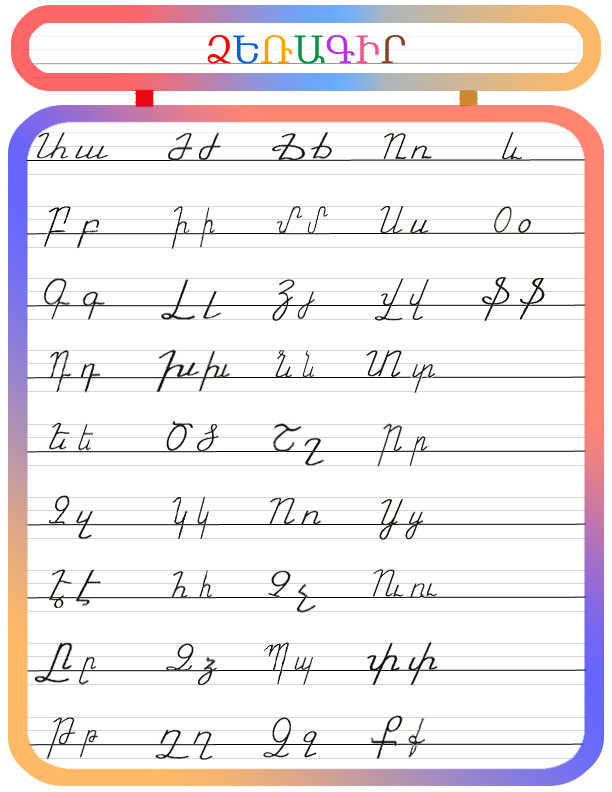 ՁԵՌԱԳԻՐ
Աա Ժժ Ճճ Ռռ և
Բբ Իի Մմ Սս Օօ
Գգ Լլ Յյ Վվ Ֆֆ
Դդ Խխ Նն Տտ
Եե Ծծ Շշ Րր
Զզ Կկ Ոո Ցց
Էէ Հհ Չչ Ուու
Ըը Ձձ Պպ Փփ
Թթ Ղղ Ջջ Քք